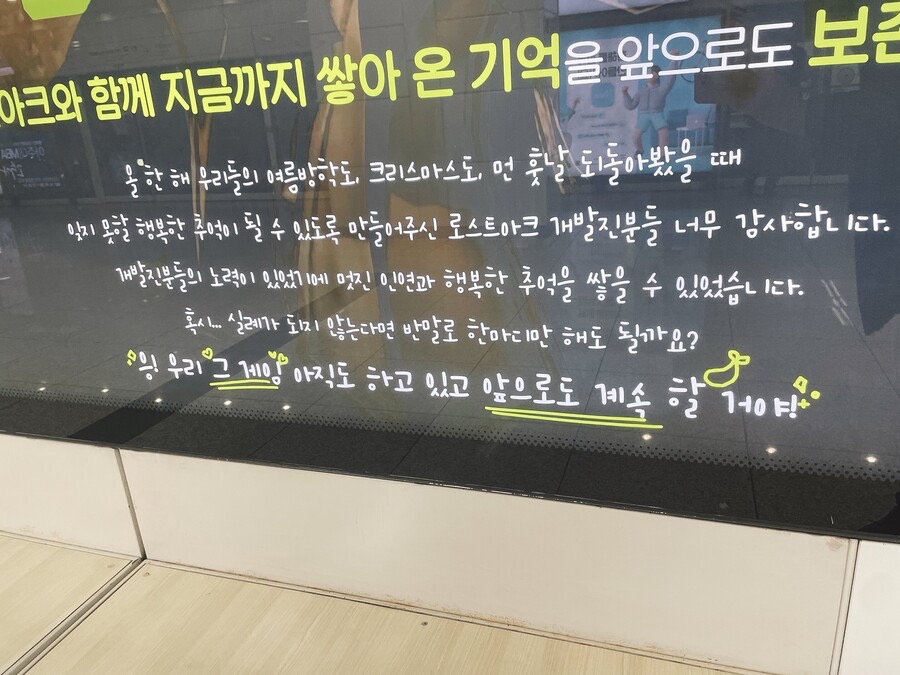 아크와 함께 지금까지 쌓아 온 기억을 앞으로도 보존
올 한 해 우리들의 여름방학도, 크리스마스도, 먼 훗날 되돌아봤을 때
잊지 못할 행복한 추억이 될 수 있도록 만들어주신 로스트아크 개발진분들 너무 감사합니다.
개발진분들의 노력이 있었기에 멋진 인연과 행복한 추억을 쌓을 수 있었습니다.
혹시... 실례가 되지 않는다면 반말로 한마디만 해도 될까요?
응! 우리 그 게임 아직도 하고 있고 앞으로도 계속 할 거야!